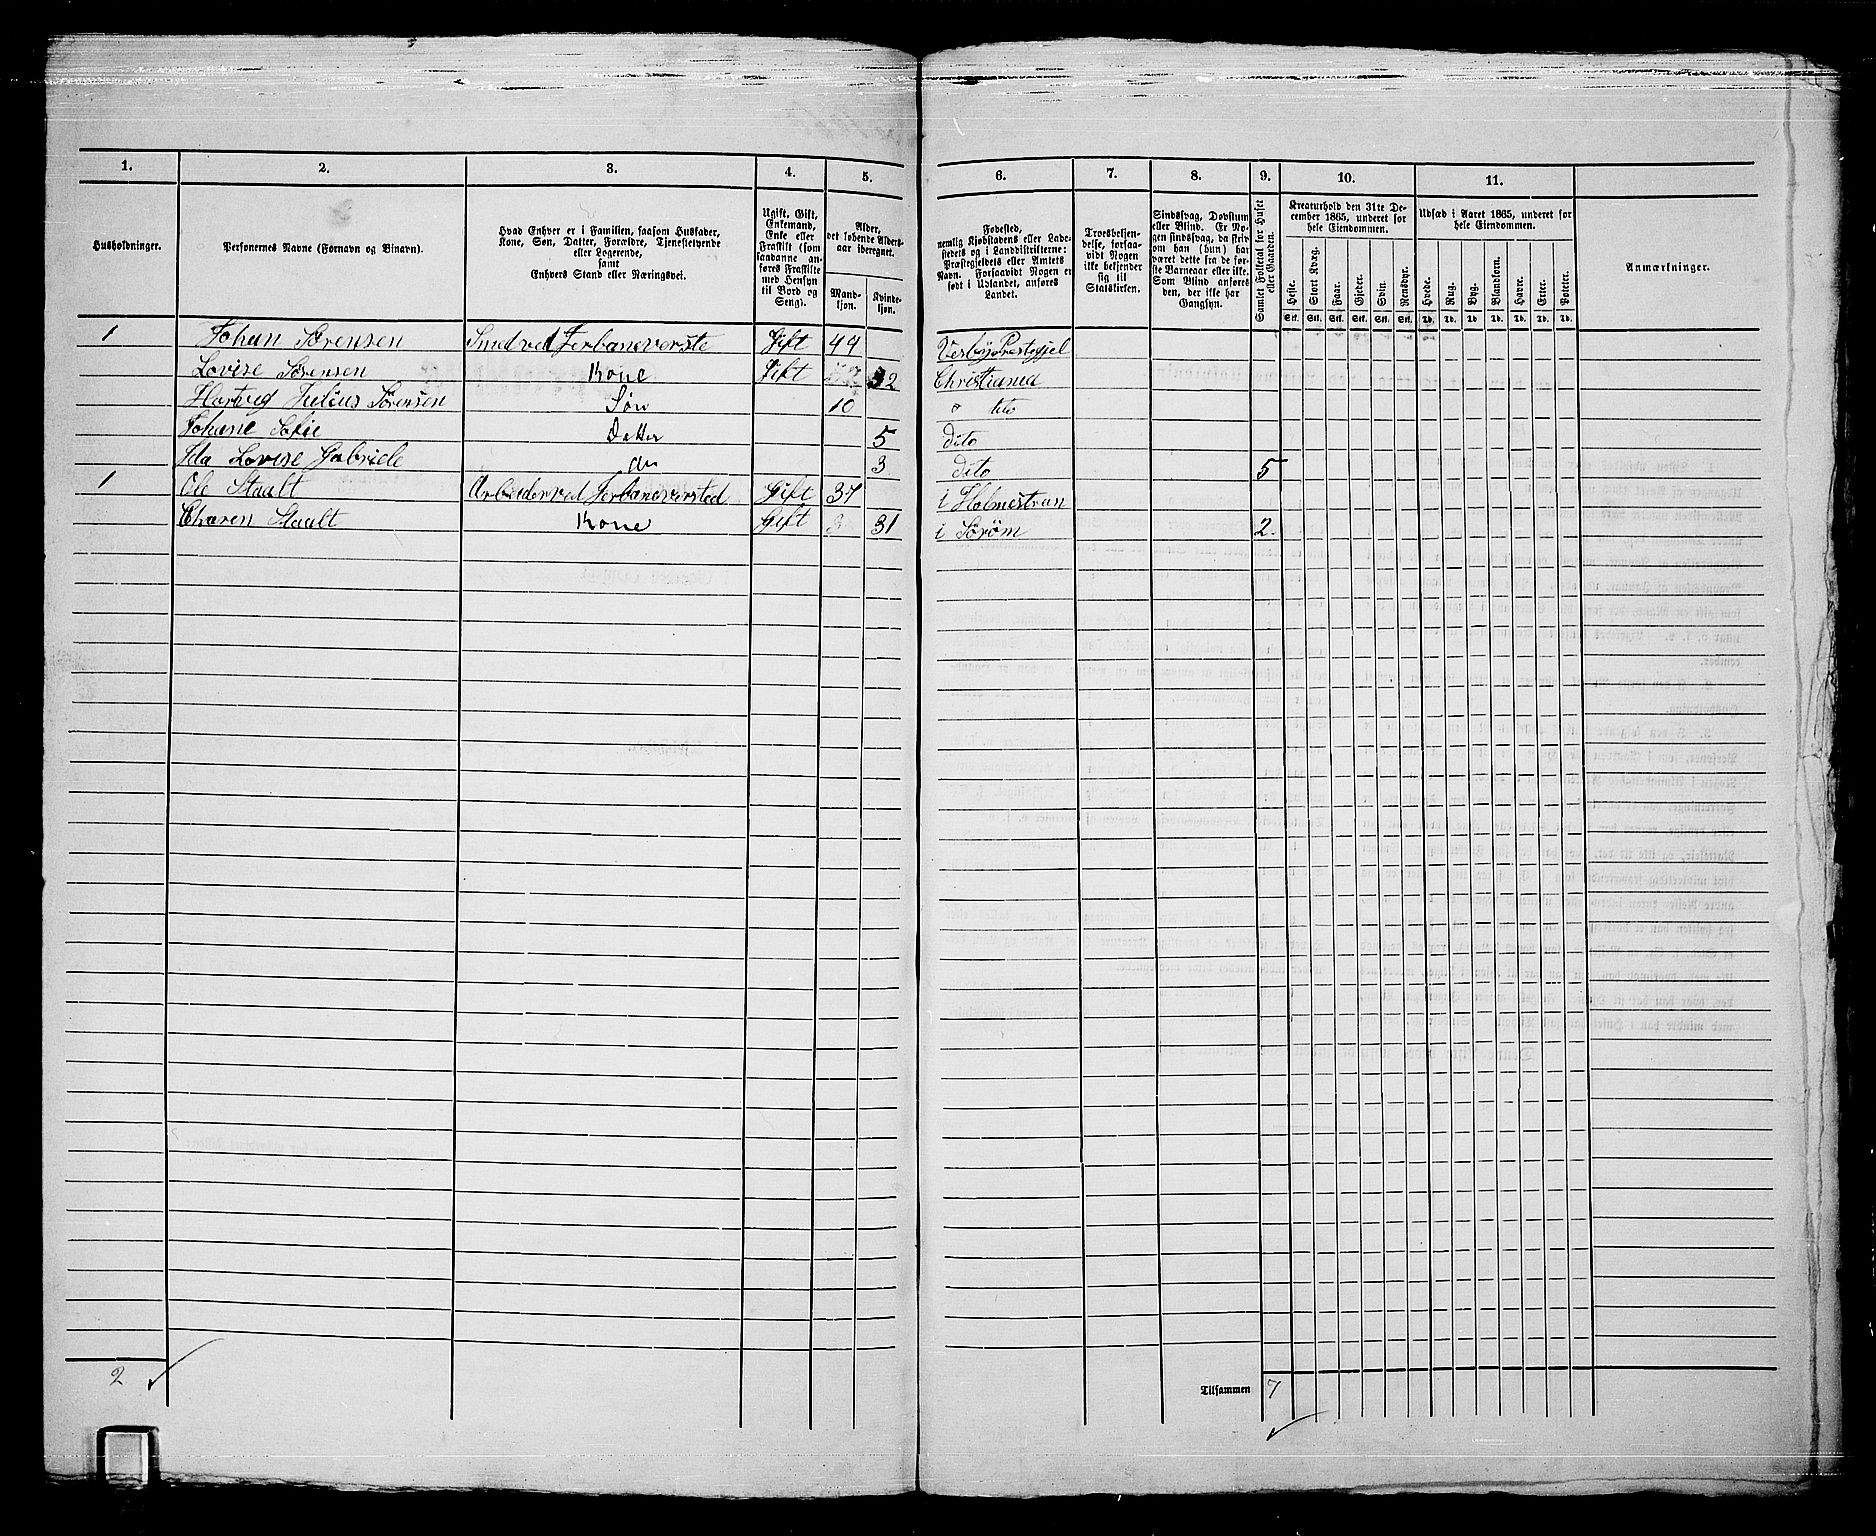 1. 2. 3. 4. 5. 6. 7. 8. 9. 10. 11.
Husholdninger.
Personernes Navne (Fornavn og Binavn).
Hvad Enhver er i Familien, saasom Husfader,
Kone, Søn, Datter, Forældre, Tjenestetyende
eller Logerende,
samt
Enhvers Stand eller Næringsvei.
Ugift, Gift,
Enkemand,
Enke eller
Fraskilt (som
saadanne an-
føres Fraskilte
med Hensyn
til Bord og
Seng).
Alder,
det løbende Alders-
aar iberegnet.
Mand-
kjøn.
Kvinde-
kjøn.
Fødested,
nemlig Kjøbstadens eller Lade-
stedets og i Landdistrikterne:
Præstegjeldets eller Amtets
Navn. Forsaavidt Nogen er
født i Udlandet, anføres
Landet.
Troesbekjen-
delse, forsaa-
vidt Nogen
ikke bekjender
sig til
Statskirken.
Sindssvag, Døvstum
eller Blind. Er No-
gen sindssvag, da skriv
om han (hun) har
været dette fra de før-
ste Barneaar eller ikke.
Som Blind anføres
den, der ikke har
Gangsyn.
Samlet Folketal for Huset
eller Gaarden.
Kreaturhold den 31te De-
cember 1865, underet for
hele Eiendommen.
Heste. Stort Kvæg. Faar. Gjeder. Svin. Rensdyr.
Stk. Stk. Stk. Stk. Stk. Stk.
Udsæd i Aaret 1865, underet for
hele Eiendommen.
Hvede. Rug. Byg. Blandkorn. Havre. Erter. Poteter.
Td. Td. Td. Td. Td. Td. Td.
Anmærkninger.
1 Johan Sørensen Smed ved Jerbaneverste Gift 44 Vesby Prestegjel
Lovise Sørensen Kone Gift 32 Christiania
Hartvig Julius Sørensen Søn 10 dito
Johane Sofie Datter 5 dito
Ida Lovise Gabriele do 3 dito 5
1 Ole Staalt Arbeider ved Jerbaneversted Gift 37 i Holmestran
Charen Staalt Kone Gift 31 i Sørøm 2
2
Tilsammen 7